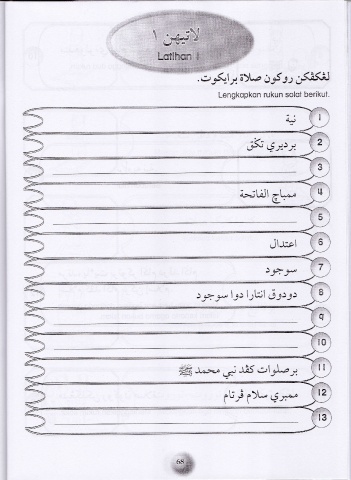 لاتيهن ١
Latihan 1
لڠكڤكن روكون صلاة برايكوت.
Lengkapkan rukun solat berikut.
1 نية
2 برديري تڬق
3
4 ممباچ الفاتحة
5
6 اعتدال
7 سوجود
8 دودوق انتارا دوا سوجود
9
10
11 برصلوات كڤد نبي محمد ﷺ
12 ممبري سلام ڤرتام
13
68